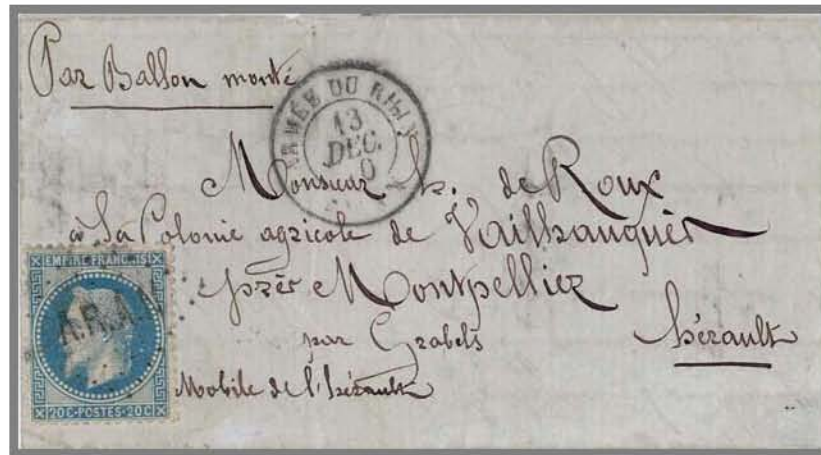 Par Ballon monté
ARMÉE DU RHIN
13
DEC.
Monsieur h. de Roux
à La Colonie agricole de Vailhauquès
près Montpellier
par Grabels
hérault
Mobile de l'hérault
EMPIRE FRANÇAIS
A.R.A.
20C·POSTES·20C